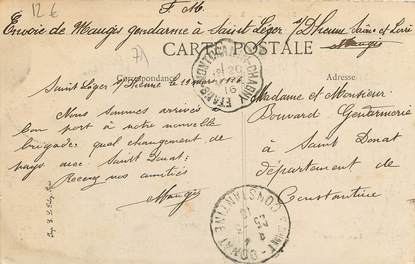 12 €
F. M.
Envoie de Maugis gendarme à Saint Léger s/Dheune Saône et Loire
Maugis
71
CARTE POSTALE
Correspondance
Adresse
Saint Léger s/Dheune le 19 mars 1916
Nous sommes arrivés
bon port à notre nouvelle
brigade; quel changement de
pays avec Saint Donat;
Recevez nos amitiés
Maugis
Madame et Monsieur
Bouvard Gendarmerie
à Saint Donat
département de
Constantine
ETANG
CHAGNY
16
ST DONAT
CONSTANTINE
23